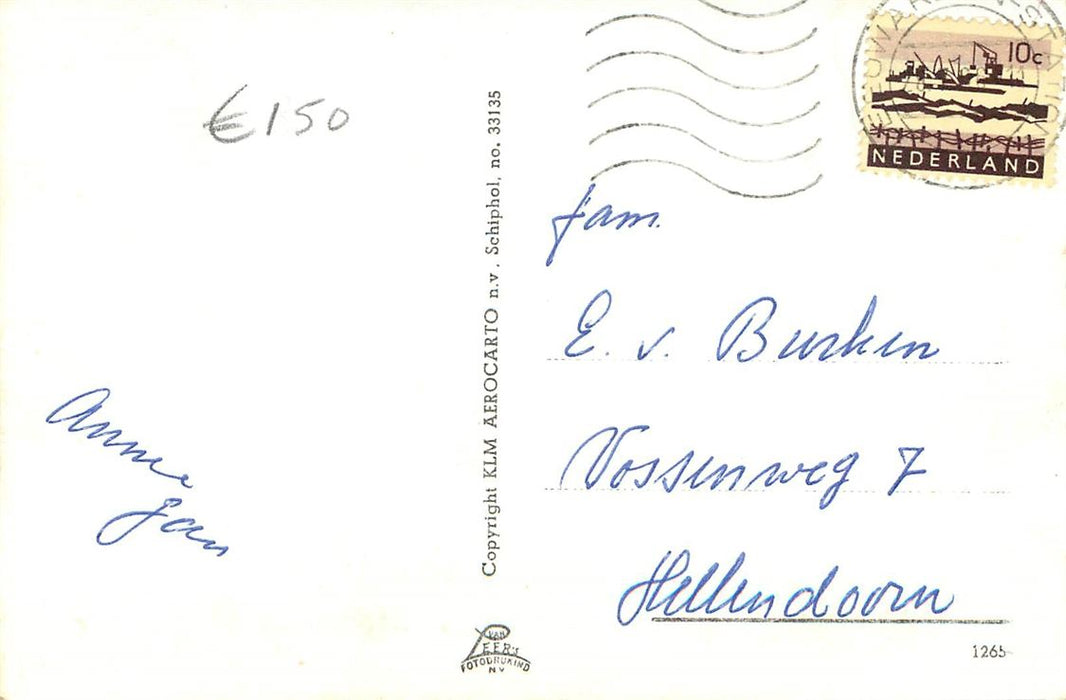 €150
Annie
Jan
Copyright KLM AEROCARTO n.v. Schiphol, no. 33135
VAN
LEER'S
FOTODRUKIND
N V
LEEUWARDEN-STATION
10c
NEDERLAND
fam.
E. v. Burken
Vossenweg 7
Hellendoorn
1265